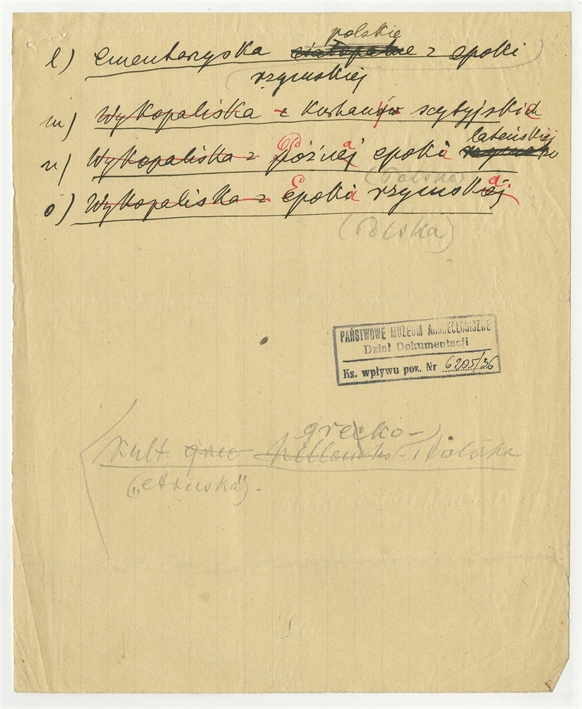 polskie
l) cmentarzyska ciałopalne z epoki
rzymskiej
m) Wykopaliska z kurhanów scytyjskich
lateńskiej
n) Wykopaliska z Późnej epoki
(Polska)
o) Wykopaliska z Epoki rzymskiej
(Polska)
PAŃSTWOWE MUZEUM ARCHEOLOGICZNE
Dział Dokumentacji
Ks. wpływu poz. Nr 6205/36
grecko-
kult. grec - italska
("etruska").